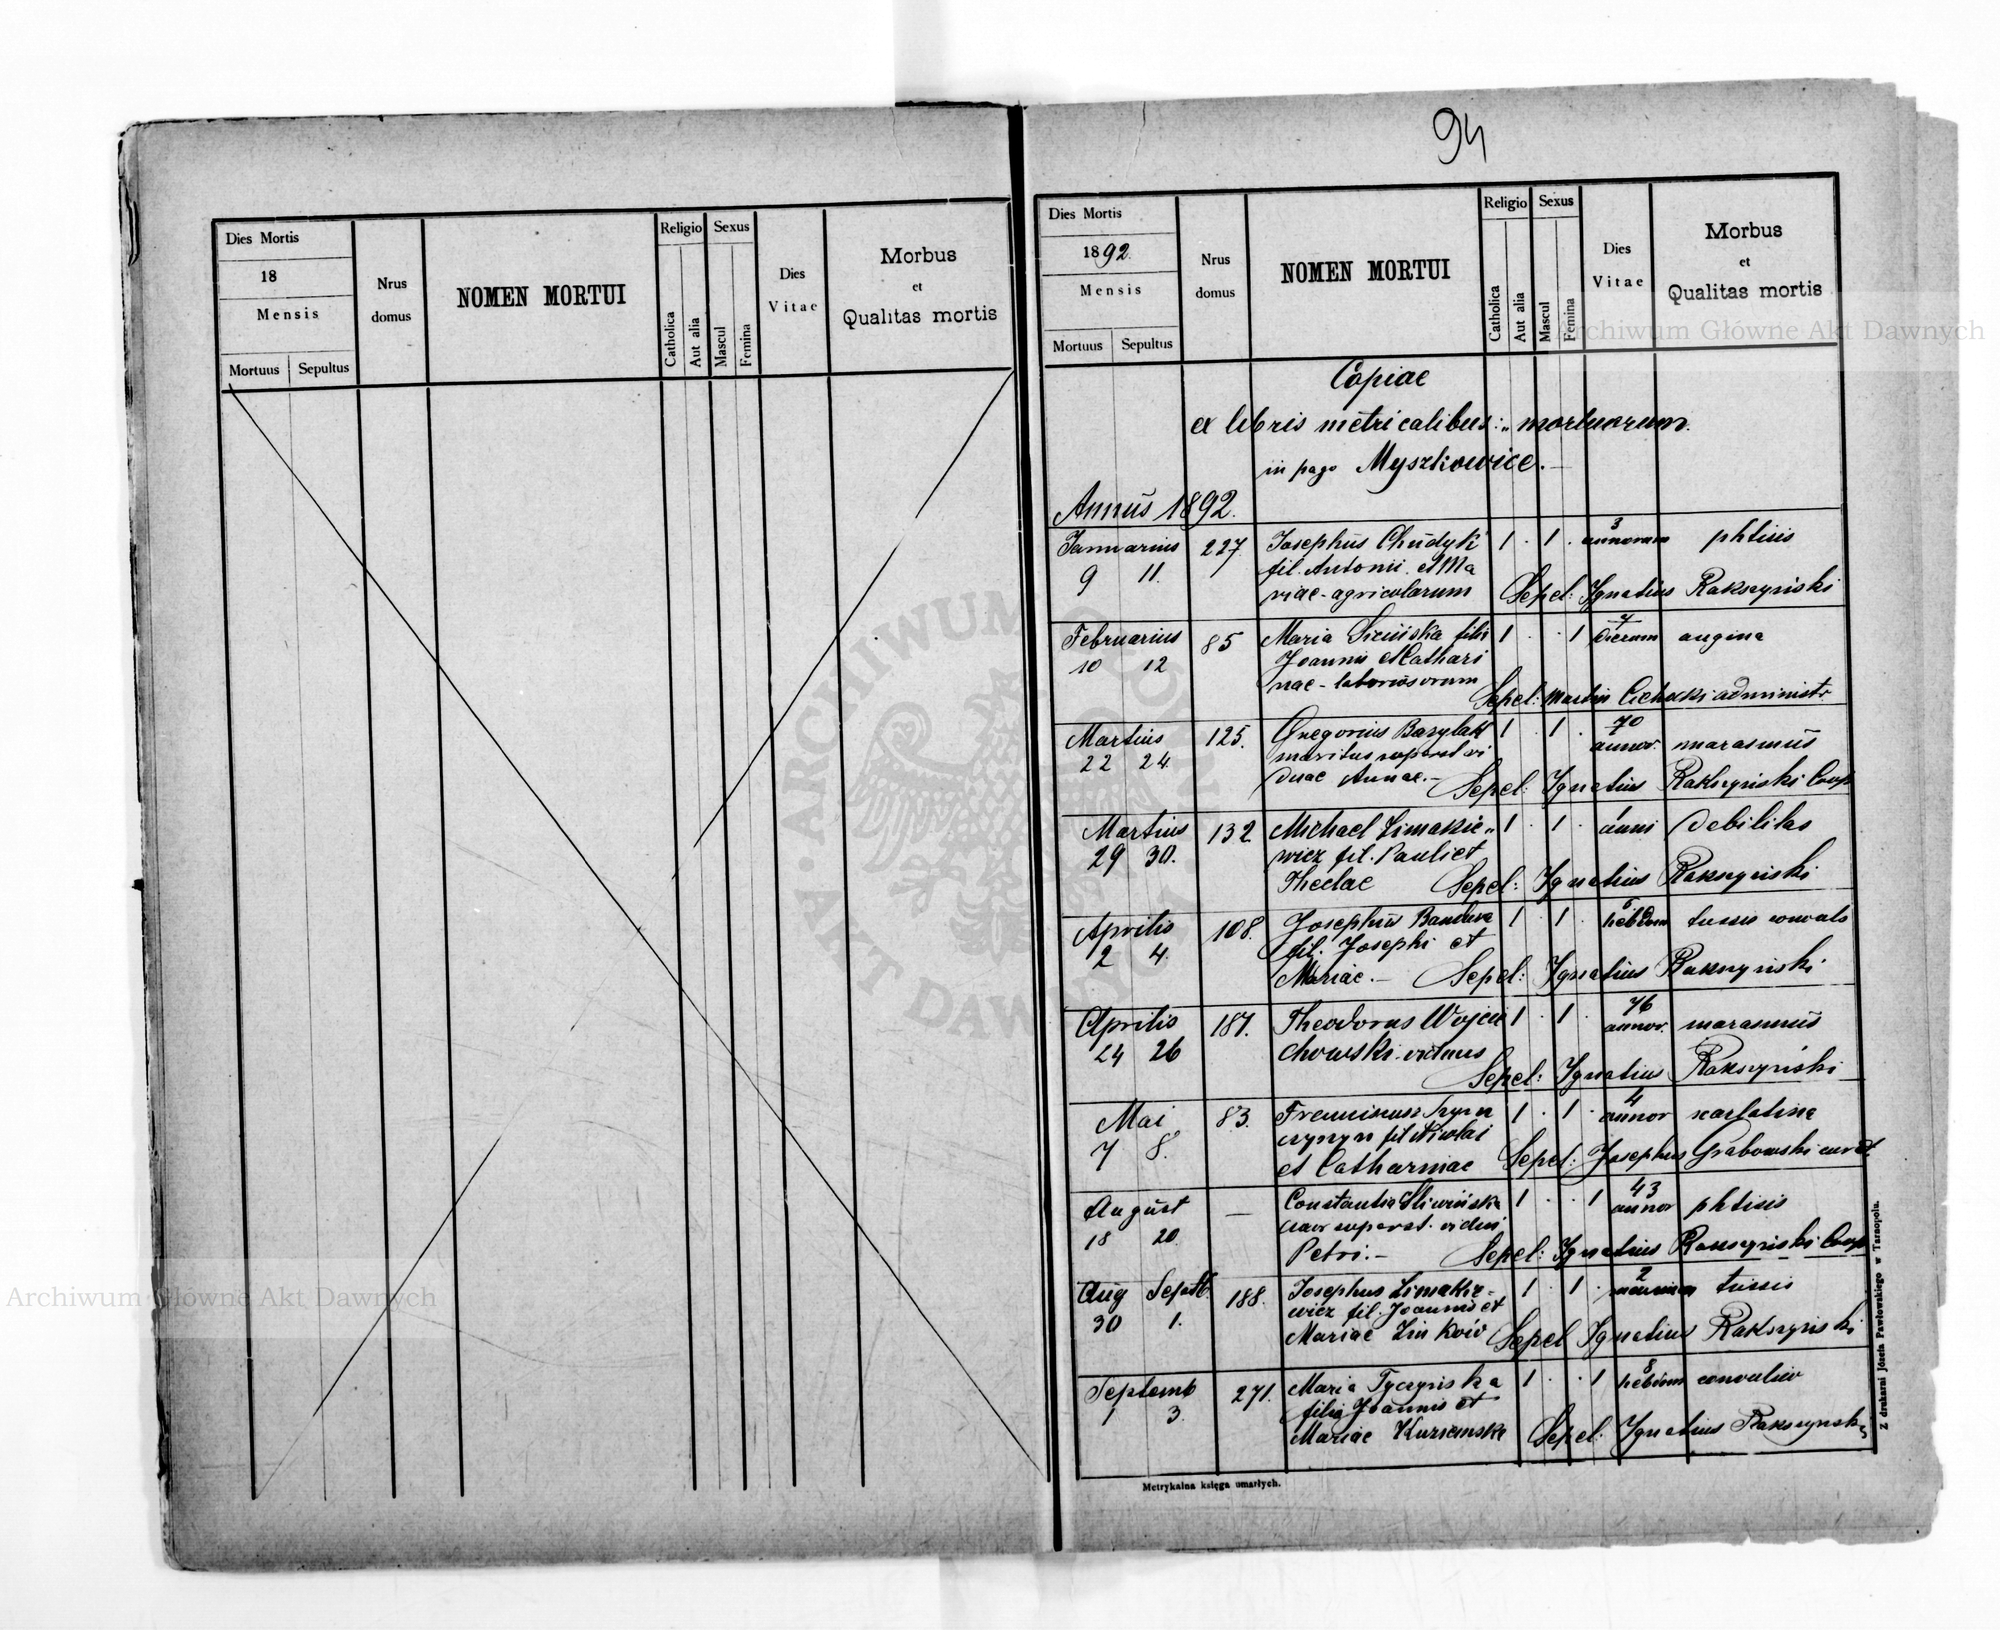 Dies Mortis
18
Mensis
Mortuus Sepultus
Nrus domus
NOMEN MORTUI
Religio
Catholica
Aut alia
Sexus
Mascul
Femina
Dies Vitae
Morbus
et
Qualitas mortis
94
Dies Mortis
1892.
Mensis
Mortuus Sepultus
Nrus domus
NOMEN MORTUI
Religio
Catholica
Aut alia
Sexus
Mascul
Femina
Dies Vitae
Morbus
et
Qualitas mortis
Copiae
ex libris metricalibus: „ mortuorum.
in pago Myszkowice.
Annus 1892.
Januarius 227 Josephus Chudyk 1 . 1 . 3 annorum phtisis
9 11. fil. Antonii et Ma
riae - agricolarum Sepel: Ignatius Rakszyński
Februarius 85 Maria filia 1 . . 1 dierum angina
10 12 Joannis et Cathari
nae - laboriosorum Sepel: Martin administr.
Martius 125. Gregorius Bazylak 1 . 1 . 70 annor. marasmus
22 24 maritus superst vi
duae Annae.- Sepel: Ignatius Rakszyński Coop
Martius 132 Michael Limakie„ 1 . 1 . 1 anni debilitas
29 30. wicz fil. Pauli et
Theclae Sepel: Ignatius Rakszyński
Aprilis 108. Josephus Bandura 1 . 1 . hebdom tussis convuls
2 4. fil. Josephi et
Mariae.- Sepel: Ignatius Rakszyński
Aprilis 187. Theodorus Wojcie 1 . 1 . 76 annor. marasmus
24 26 chowski viduus
Sepel: Ignatius Rakszyński
Mai 83. 1 . 1 . 4 annor scarlatina
7 8. fil Nicolai
et Catharinae Sepel: Josephus Grabowski
August — Constantia Śliwińska 1 . . 1 43 annor phtisis
18 20. uxor superst. vidui
Petri.- Sepel: Ignatius Rakszyński Coop
Aug Septb. 188. Josephus Limakie- 1 . 1 . 2 mensium tussis
30 1. wicz fil. Joannis et
Mariae Sepel Ignatius Rakszyński
Septemb 271. Maria Tyczyńska 1 . . 1 8 hebdom convulsio
1 3. filia Joannis et
Mariae Kuziemska Sepel: Ignatius Rakszyński
Metrykalna księga umarłych.
Z drukarni Józefa Pawłowskiego w Tarnopolu.
Archiwum Główne Akt Dawnych
Archiwum Główne Akt Dawnych
ARCHIWUM GŁÓWNE AKT DAWNYCH